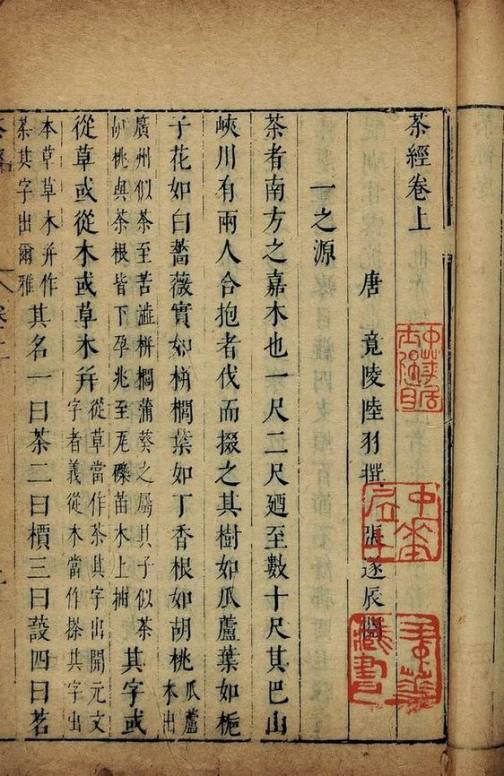 茶經卷上
唐　竟陵陸羽撰　張遂辰閱
一之源
茶者南方之嘉木也一尺二尺廼至數十尺其巴山
峽川有兩人合抱者伐而掇之其樹如瓜蘆葉如梔
子花如白薔薇實如栟櫚葉如丁香根如胡桃瓜蘆木出
廣州似茶至苦澁栟櫚蒲葵之屬其子似茶
胡桃與茶根皆下孕兆至瓦礫苗木上抽
其字或
從草或從木或草木并
從草當作茶其字出開元文
字者義從木當作搽其字出
本草草木并作
茶其字出爾雅
其名一曰茶二曰檟三曰蔎四曰茗